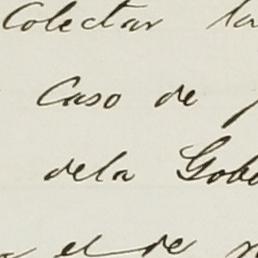 Colectar la
Caso de
dela Gobe
el de